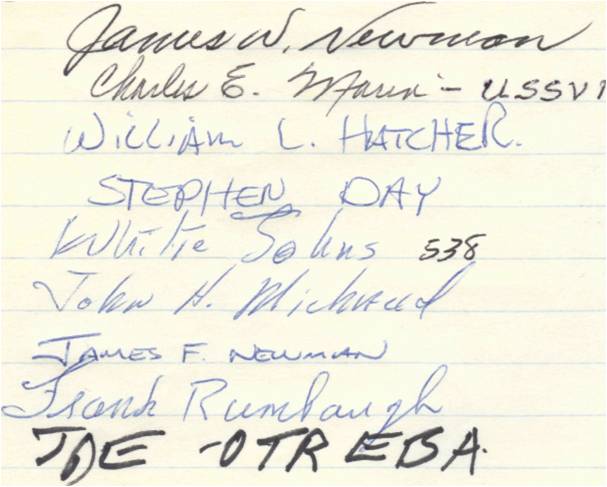 James W. Newman
Charles E. - USSVI
WILLIAM L. HATCHER.
STEPHEN DAY
Whitie Johns 538
John H. Michaud
JAMES F. NEWMAN
Frank Rumbaugh
JOE OTREBA.